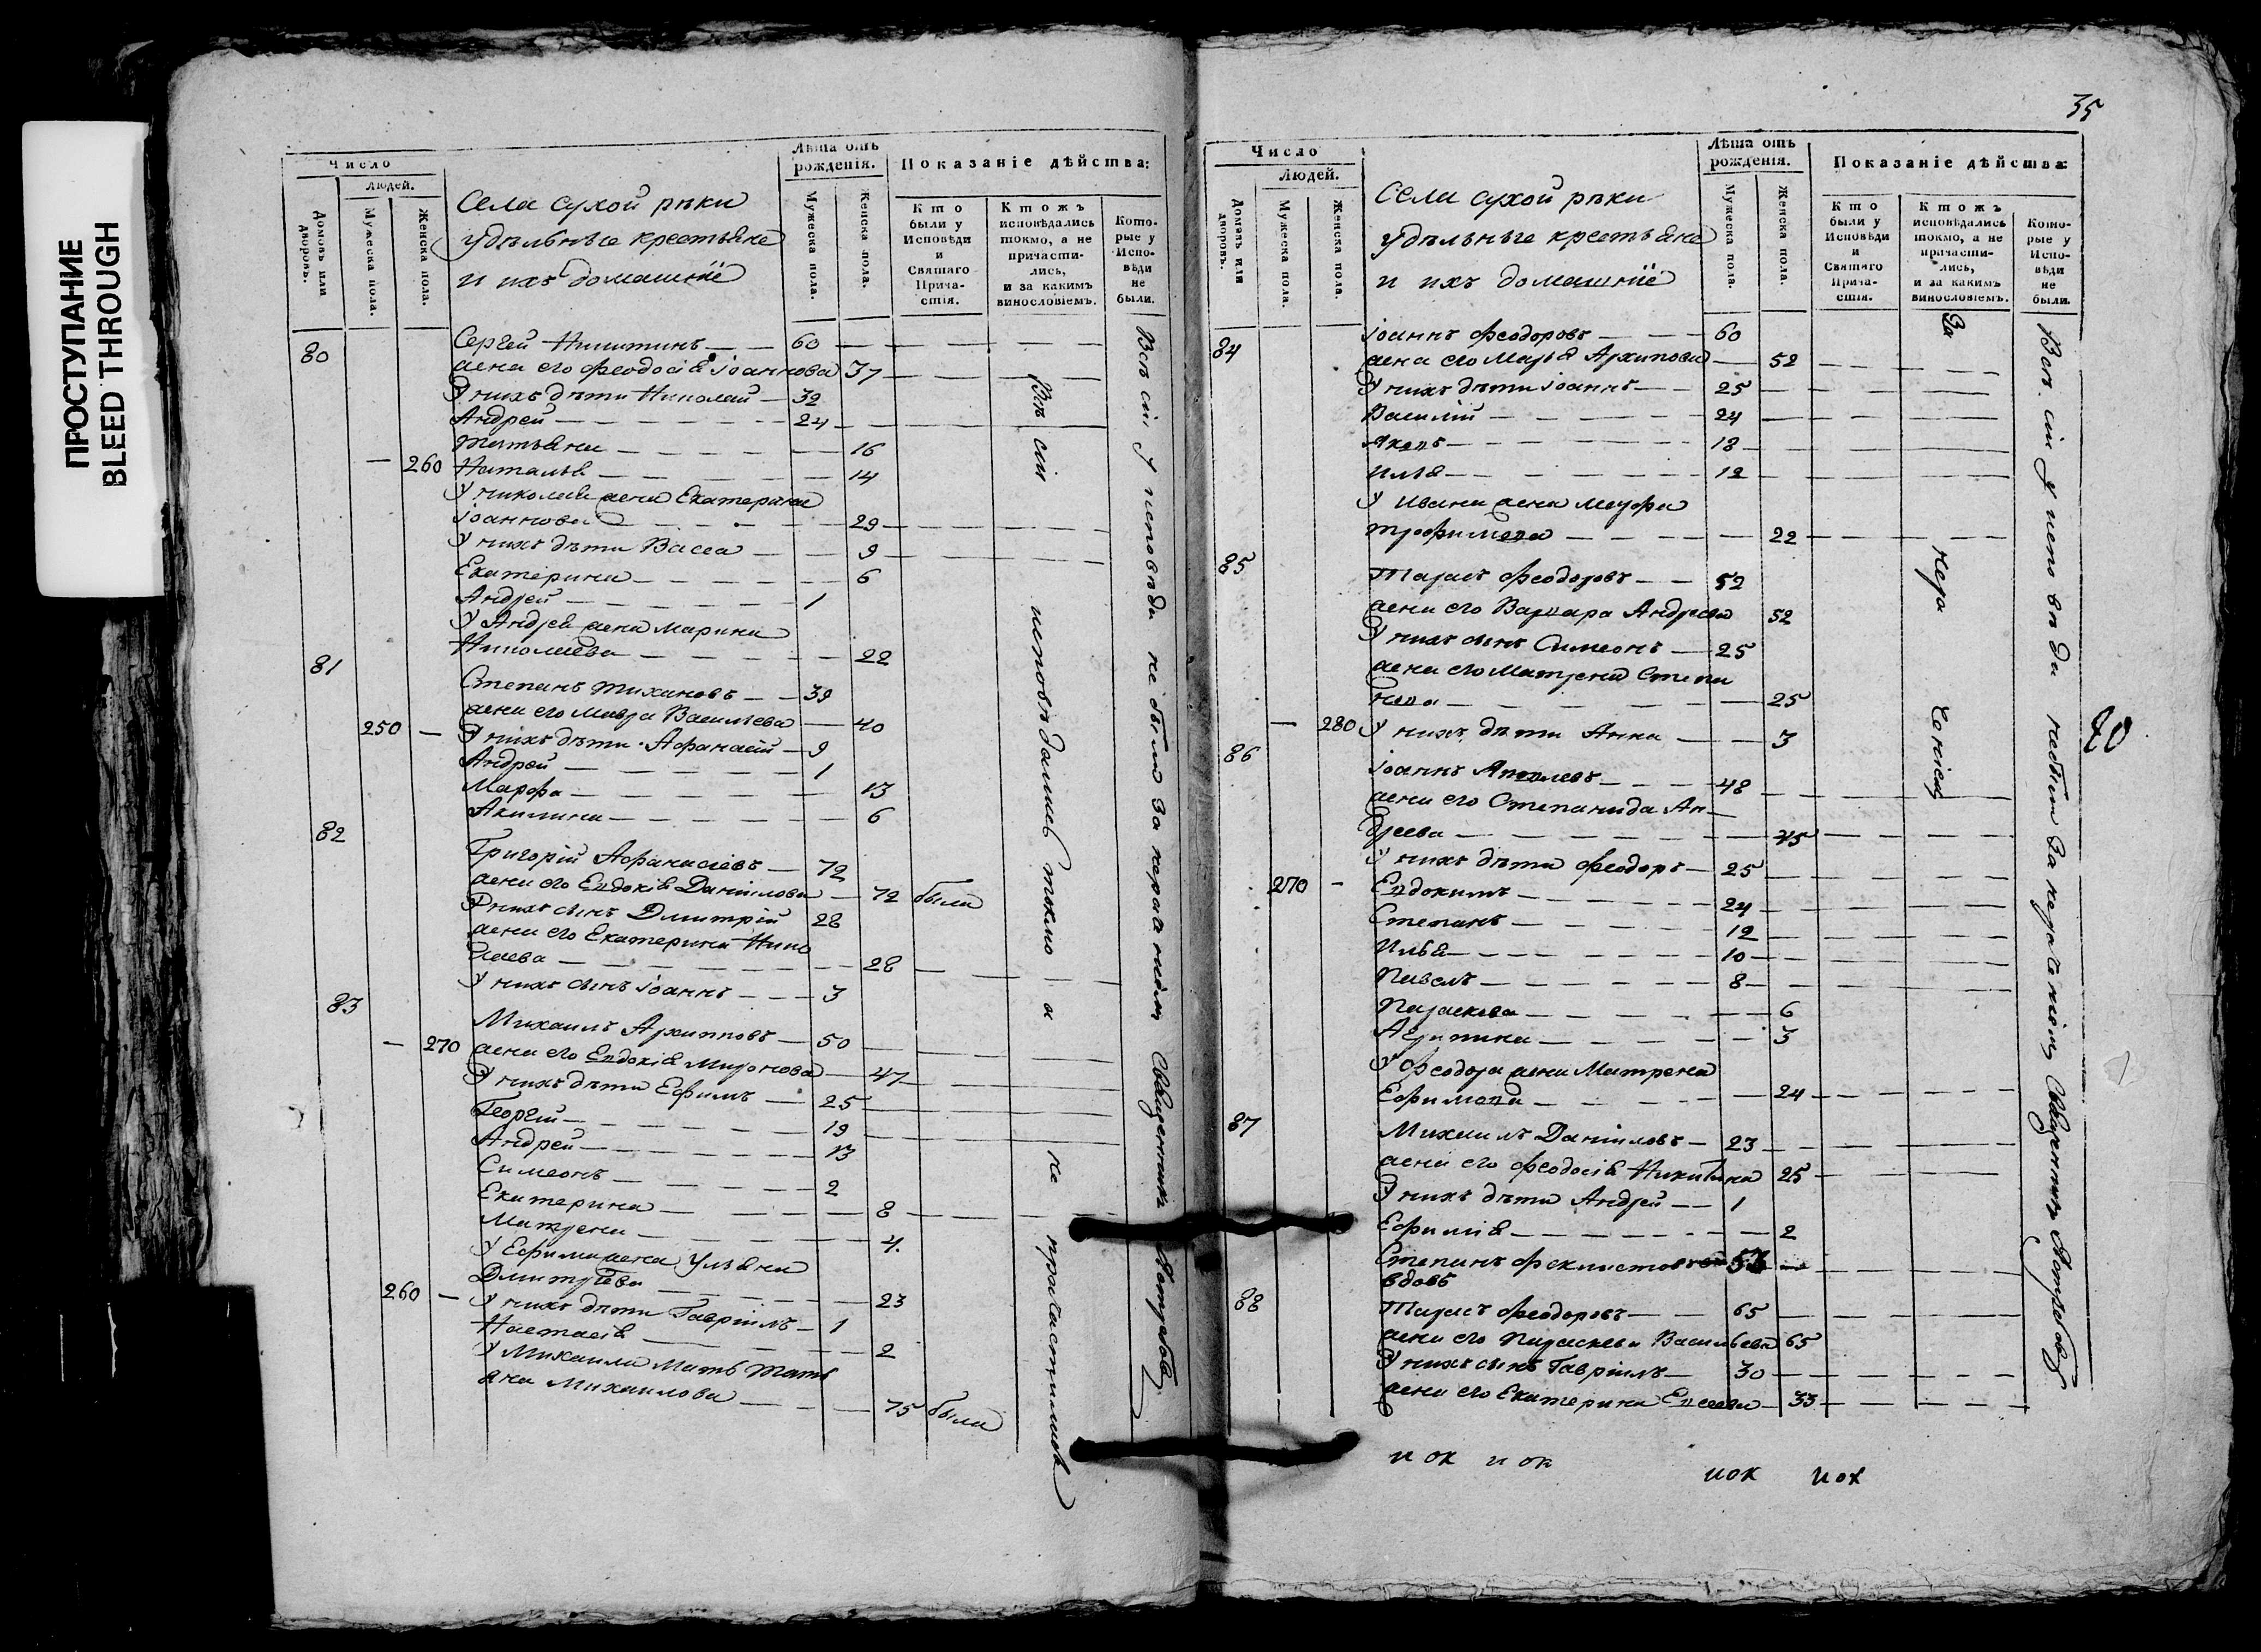 ПРОСТУПАНИЕ
BLEED THROUGH
Число
людей.
Домовъ или дворовъ.
Мужеска пола.
Женска пола.
Села сухой рѣки
удѣльныя крестьяне
и ихъ домашніе
Лѣта отъ рожденія.
Мужеска пола.
Женска пола.
Показаніе дѣйства:
Кто были у Исповѣди и Святаго Прича-стія.
Ктожъ исповѣдались токмо, а не причасти-лись, и за какимъ винословіемъ.
Кото-рые у Испо-вѣди не были.
80 Сергей Никитинъ 60
жена его Феодосія Іоаннова 37
У нихъ дѣти Николай 32
Андрей 24
Татьяна 16
260 Наталья 14
У николая жена Екатерина
Іоаннова 29
У нихъ дѣти Васса 9
Екатерина 6
Андрей 1
У Андрея жена марина
Николаева 22
81
Степанъ Тихановъ 39
жена его мавра Васильева 40
250 У нихъ дѣти Афанасій 9
Андрей 1
Марфа 13
Акилина 6
82
Григорій Афанасіевъ 72
жена его Евдокія Даніилова 72 были
У нихъ сынъ Дмитрій 28
жена его Екатерина Нико
лаева 28
У нихъ сынъ Іоаннъ 3
83
Михаилъ Архиповъ 50
270 жена его Евдокія Миронова 47
У нихъ дѣти Ефимъ 25
Георгій 19
Андрей 13
Симеонъ 2
Екатерина 8
Матрена 4
У Ефима жена Ульяна
Дмитріева 23
260 У нихъ дѣти Гавріилъ 1
Настасія 2
У Михаила мать Тать
яна Михаилова 75 были
Всѣ сіи исповѣдались токмо а не причастились
Всѣ сіи у исповѣди не были за нерачениемъ Священникъ
35
Число
Людей.
Домовъ или дворовъ.
Мужеска пола.
Женска пола.
Села сухой рѣки
удѣльныя крестьяне
и ихъ домашніе
Лѣта отъ рожденія.
Мужеска пола.
Женска пола.
Показаніе дѣйства:
Кто были у Исповѣди и Святаго Прича-стія.
Ктожъ исповѣдались токмо, а не причасти-лись, и за какимъ винословіемъ.
Кото-рые у Испо-вѣди не были.
84 Іоаннъ Феодоровъ 60
жена его Марья Архипова 52
У нихъ дѣти Іоаннъ 25
Василій 24
Яковъ 18
Илья 12
У Ивана жена
Трофимова 22
85 Тарасъ Феодоровъ 52
жена его Варвара Андреева 52
У нихъ сынъ Симеонъ 25
жена его Матрена Степа
нова 25
280 У нихъ дѣти Анна 3
86
Іоаннъ Яковлевъ 48
жена его Степанида Ан
дреева 45
У нихъ дѣти Феодоръ 25
270 Евдокимъ 24
Степанъ 12
Илья 10
Павелъ 8
Параскева 6
Агрипина 3
У Феодора жена Матрена
Ефимова 24
87 Михаилъ Даніиловъ 23
жена его Феодосія Никитина 25
У нихъ дѣти Андрей 1
Ефимія 2
Степанъ
вдовъ
88 Тарасъ Феодоровъ 65
жена его Параскева Васильева 65
У нихъ сынъ Гавріилъ 30
жена его Екатерина Евсеева 33
За нера чениемъ
Всѣ сіи у исповѣди не были за нерачениемъ Священникъ
40